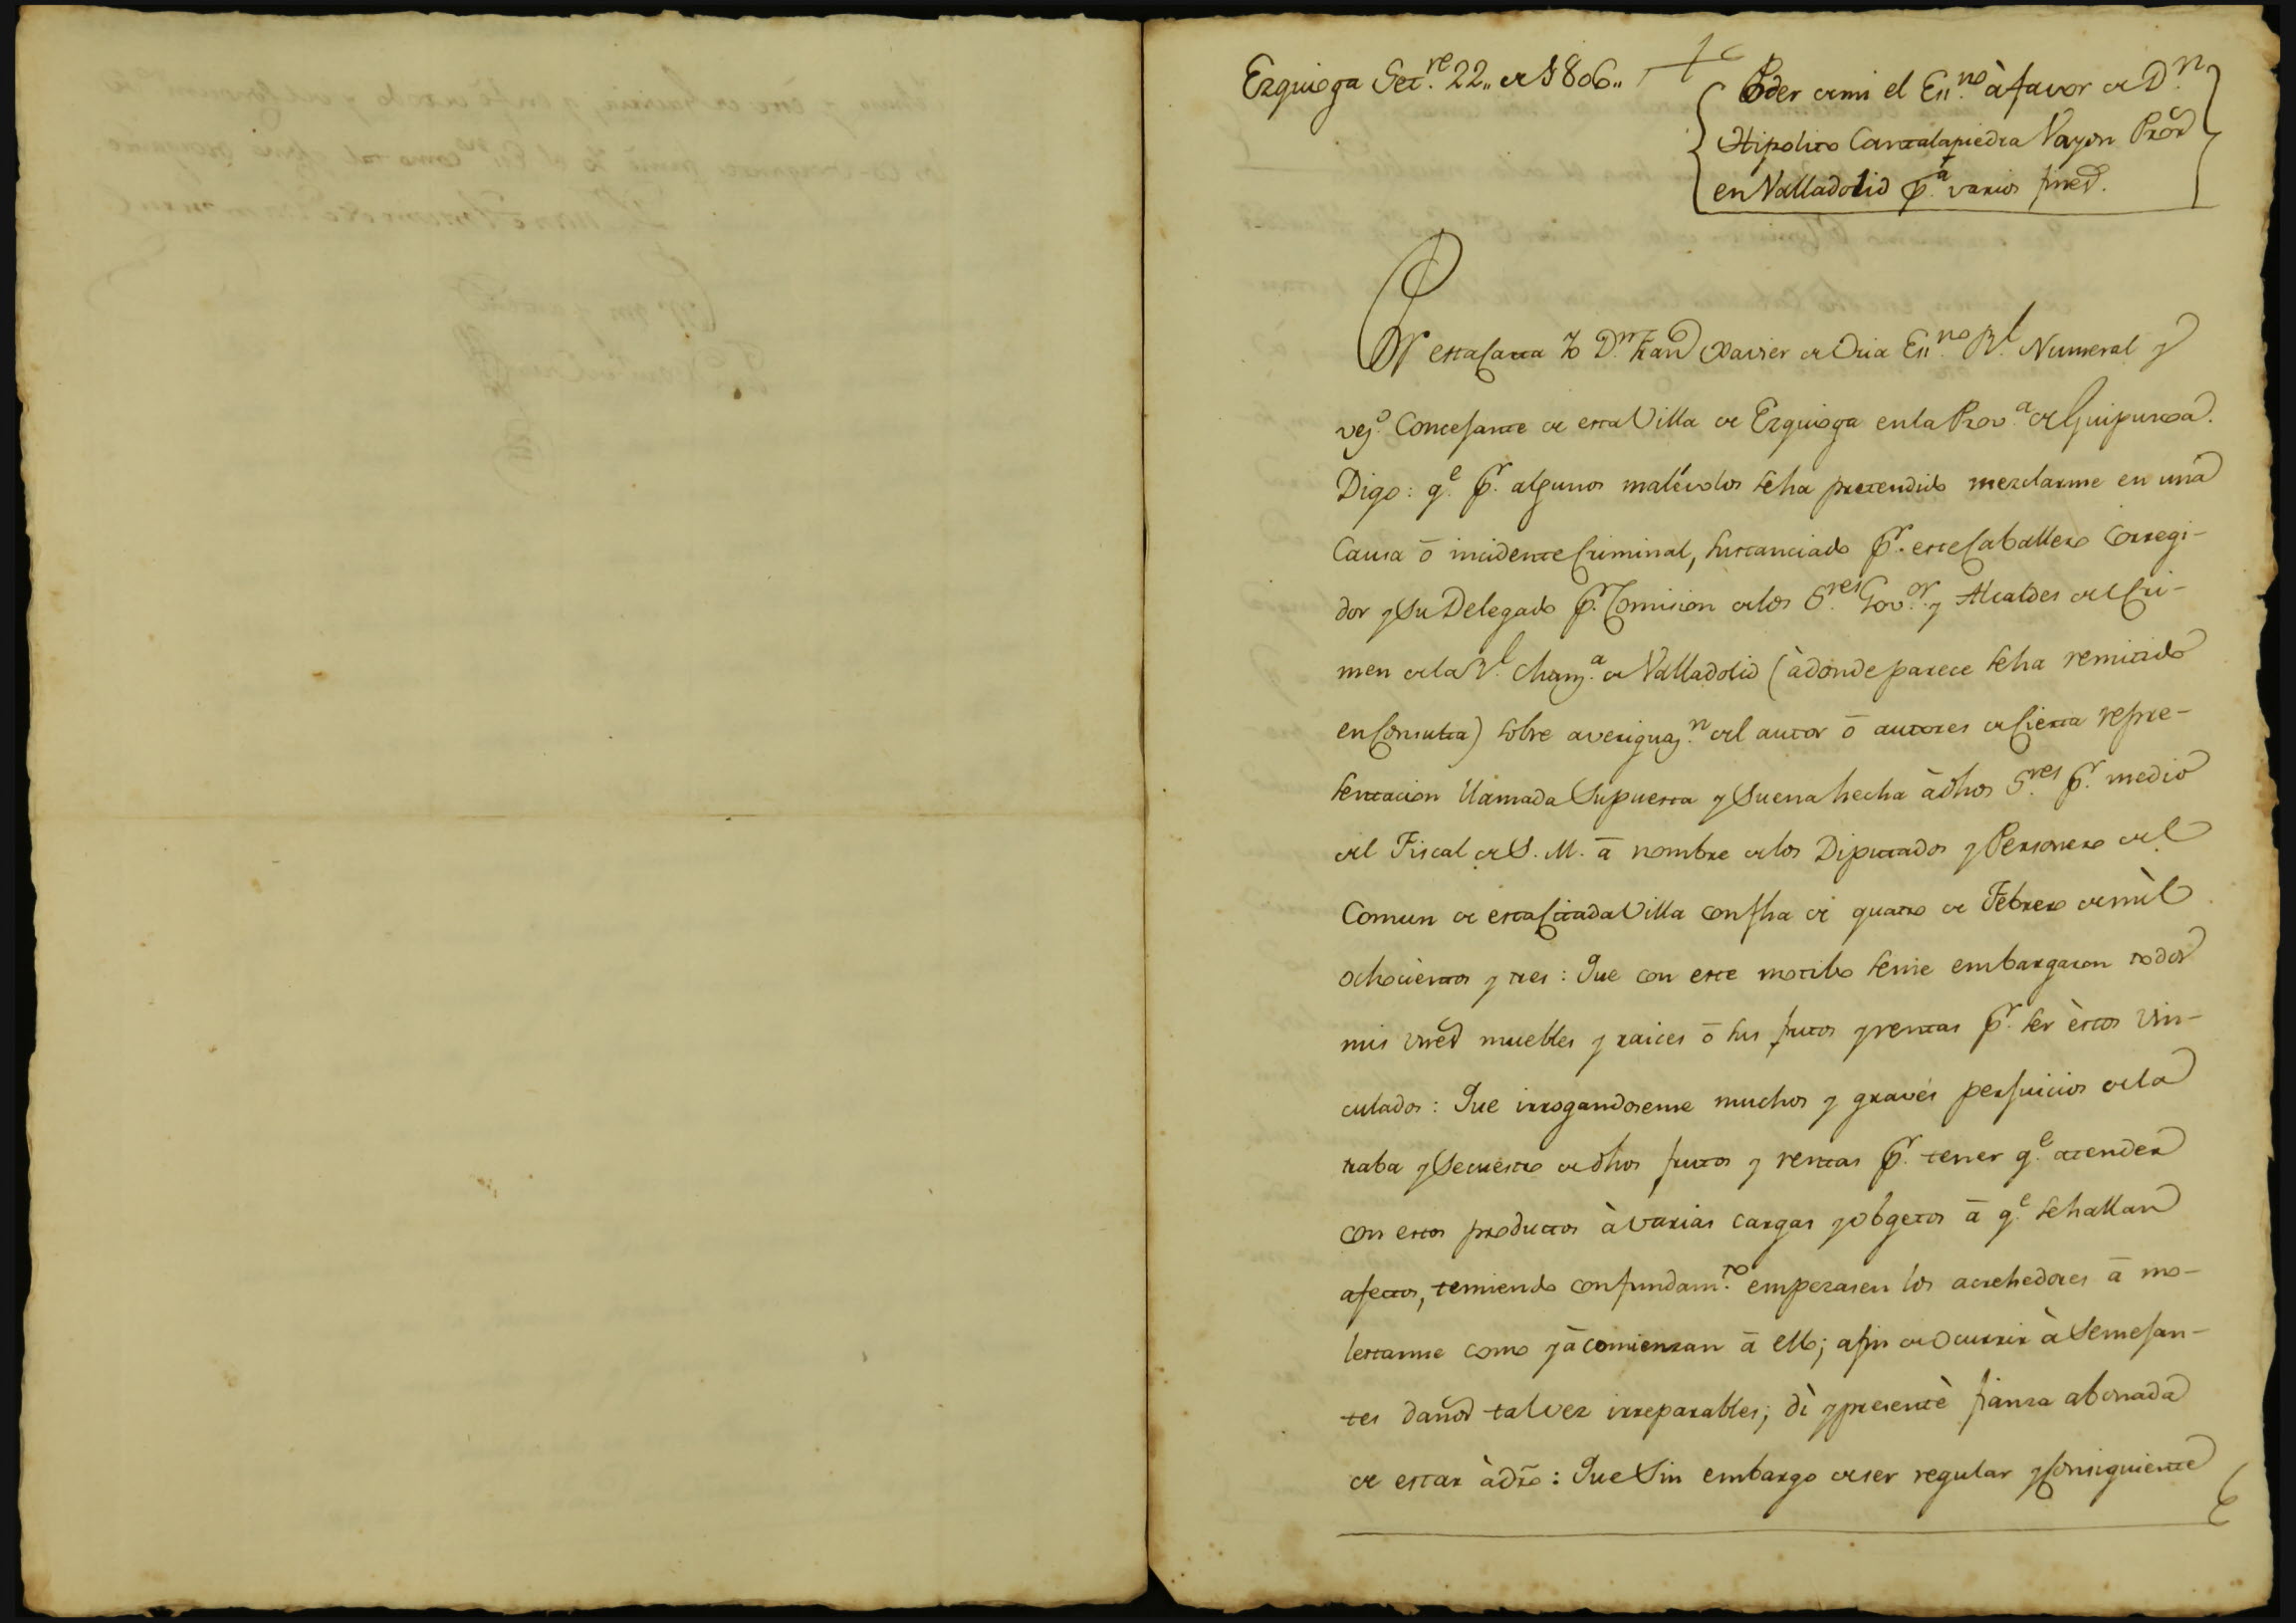 Ezquioga Set.re 22,, de 1806,,
Poder de mi el En.no à favor de D.n
Hipolito Cantalapiedra Vayon Pror
en Valladolid p.a varios fines.
Por esta Carta Yo D.n Fran.co Xavier de Oria En.no R.l Numeral y
vej.o Concejante de esta Villa de Ezquioga en la Prov.a de Guipuzcoa.
Digo: q.e p.r algunos malévolos se ha pretendido mezclarme en una
Causa ō incidente Criminal, sustanciado p.r este Caballero Corregi-
dor y su Delegado p.r Comision de los S.res Gov.or y Alcaldes del Cri-
men de la R.l Chanz.a de Valladolid (à donde parece se ha remitido
en Consulta) sobre averiguaz.n del autor ō autores de Cierta repre-
sentacion llamada Supuesta y Suena hecha à dhos S.res p.r medio
del Fiscal de S. M. ā nombre de los Diputados y Personero del
Comun de esta Citada Villa con fha de quatro de Febrero de mil
ochocientos y tres: Que con este motibo se me embargaron todos
mis vnes muebles y raices ō sus frutos y rentas p.r ser èstos vin-
culados: Que irrogandoseme muchos y graves perjuicios de la
traba y Secuestro de dhos frutos y rentas p.r tener q.e atender
con estos productos à varias cargas y obgetos ā q.e se hallan
afectos, temiendo con fundam.to empezasen los acrehedores ā mo-
lestarme como yā comienzan ā ello; a fin de Ocurrir à Semejan-
tes daños tal vez irreparables; dì y presentè fianza abonada
de estar à dro: Que Sin embargo de ser regular y Consiguiente